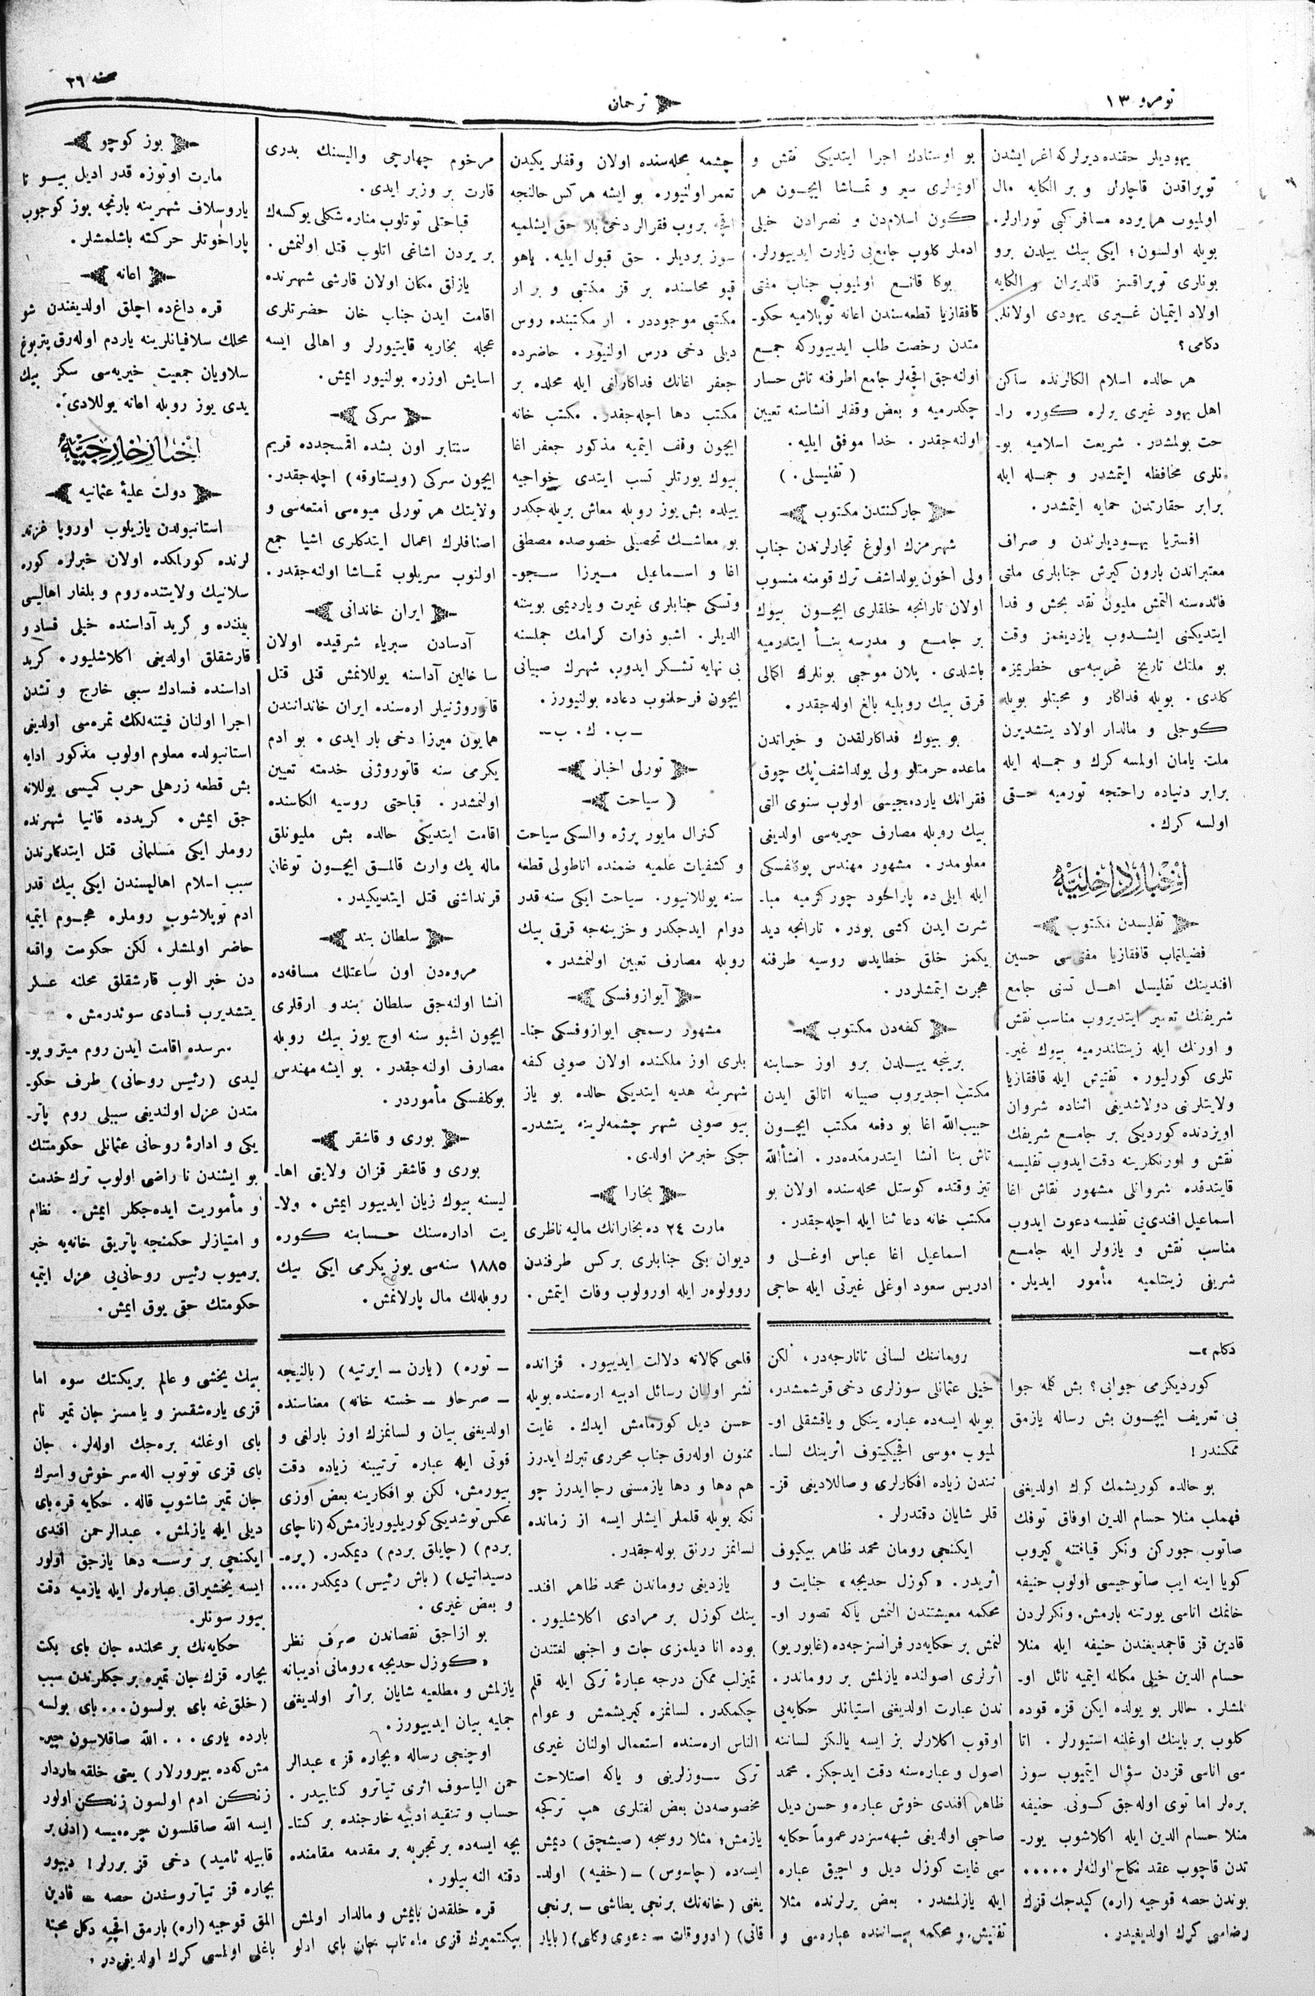 نومرو ١٣
ترجمان
صحنه ٢٦
يهوديلر حقنده ديرلركه اغر ايشدن
توپراقدن قاچارلر و بر الكايه مال
اولميوب هر يرده مسافر كبی تورارلر.
بويله اولسون؛ ايكی بيك ييلدن برو
بونلری توپراقسز قالديران و الكايه
اولاد ايتميان غيری يهودی اولانلر
دكامی؟
هر حالده اسلام الكالرنده ساكن
اهل يهود غيری يرلره كوره را-
حت بولمشدر. شريعت اسلاميه بو-
نلری محافظه ايتمشدر و جمله ايله
برابر حقارتدن حمايه ايتمشدر.
افستريا يهوديلرندن و صراف
معتبراندن بارون كيرش جنابلری ملتی
فائده‌سنه التمش مليون نقد بخش و فدا
ايتديكنی ايشدوب يازديغمز وقت
بو ملتك تاريخ غريبه‌سی خطريمزه
كلدی. بويله فداكار و محبتلو بويله
كوجلی و مالدار اولاد يتشديرن
ملت يامان اولمسه كرك و جمله ايله
برابر دنياده راحتجه تورميه حقی
اولسه كرك.
اخبار داخليه
تفليسدن مكتوب
فضيلتماب قافقازيا مفتيسی حسين
افندينك تفليسل اهل تسنی جامع
شريفك تعمير ايتديروب مناسب نقش
و اورنك ايله زينتاندرميه بيوك غير-
تلری كورليور. تفتيش ايله قافقازيا
ولايتلرنی دولاشديغی اثناده شروان
اويزدنده كورديكی بر جامع شريفك
نقش و اورنكلرينه دقت ايدوب تفليسه
قايتدقده شروانلی مشهور نقاش اغا
اسماعيل افندی‌نی تفليسه دعوت ايدوب
مناسب نقش و يازولر ايله جامع
شريفی زينتلميه مأمور ايديلر.
بو اوستادك اجرا ايتديكی نقش و
اويلری سير و تماشا ايچون هر
كون اسلامدن و نصرادن خيلی
ادملر كلوب جامع‌نی زيارت ايدييورلر.
بوكا قانع اولميوب جناب مفتی
قافقازيا قطعه‌سندن اعانه توپلاميه حكو-
متدن رخصت طلب ايدييوركه جمع
اولنه‌جق اقچه‌لر جامع اطرفنه تاش حسار
چكدرميه و بعض وقفلر انشاسنه تعيين
اولنه‌جقدر. خدا موفق ايليه.
( تفليسلی. )
جاركنتدن مكتوب
شهرمزك اولوغ تجارلرندن جناب
ولی آخون يولداشف ترك قومنه منسوب
اولان تارانجه خلقلری ايچون بيوك
بر جامع و مدرسه بنأ ايتدرميه
باشلدی. پلان موجبی بونلرك اكمالی
قرق بيك روبليه بالغ اوله‌جقدر.
بو بيوك فداكارلقدن و خيراتدن
ماعده حرمتلو ولی يولداشف پك چوق
فقرانك ياردمجيسی اولوب سنوی التی
بيك روبله مصارف خيريه‌سی اولديغی
معلومدر. مشهور مهندس پوقلفسكی
ايله ايلی ده پاراخود چوركزميه مبا-
شرت ايدن كشی بودر. تارانجه ديد
يكمز خلق خطايدن روسيه طرفنه
هجرت ايتمشلردر.
كفه‌دن مكتوب
برينجه ييلدن برو اوز حسابنه
مكتب اجديروب صبيانه اتالق ايدن
حبيب‌الله اغا بو دفعه مكتب ايچون
تاش بنا انشا ايتدرمتده‌در. انشأالله
تيز وقتده كوستل محله‌سنده اولان بو
مكتب خانه دعا ثنا ايله اچله‌جقدر.
اسماعيل اغا عباس اوغلی و
ادريس سعود اوغلی غيرتی ايله حاجی
چشمه محله‌سنده اولان وقفلر يكيدن
تعمر اولنيوره بو ايشه هر كس حالنجه
اقچه بروب فقرالر دخی بلا حق ايشلميه
سوز برديلر. حق قبول ايليه. ياهو
قپو محاسنده بر قز مكتبی و بر ار
مكتبی موجوددر. ار مكتبنده روس
ديلی دخی درس اولنيور. حاضرده
جعفر اغانك فداكارلغی ايله محلده بر
مكتب دها اچله‌جقدر. مكتب خانه
ايچون وقف ايتميه مذكور جعفر اغا
بيوك يورتلر نسب ايتدی خواجيه
ييلده بش يوز روبله معاش بريله‌جكدر
بو معاشك تحصيلی خصوصده مصطفی
اغا و اسماعيل ميرزا سجو-
وتسكی جنابلری غيرت و يارديمی بويننه
الديلر. اشبو ذوات كرامك جمله‌سنه
بی نهايه تشكر ايدوب، شهرك صبيانی
ايچون فرحلنوب دعاده بولنيورز.
ـ ب. ك. ب ـ
تورلی اخبار
سياحت
كنرال مايور پرژه والسكی سياحت
و كشفيات علميه ضمنده اناطولی قطعه
سنه يوللانيور. سياحت ايكی سنه قدر
دوام ايدجكدر و خزينه‌جه قرق بيك
روبله مصارف تعيين اولنمشدر.
آيوازوفسكی
مشهور رسمجی ايوازوفسكی جنا-
بلری اوز ملكنده اولان صويی كفه
شهرينه هديه ايتديكی حالده بو ياز
بيو صويی شهر چشمه‌لرينه يتشدر-
جكی خبرمز اولدی.
بخارا
مارت ٢٤ ده بخارانك ماليه ناظری
ديوان بكی جنابلری بر كس طرفندن
روولوەر ايله اورولوب وفات ايتمش.
مرحوم چهارچی واليسنك بدری
قارت بر وزير ايدی.
قباحتلی توتلوب مناره شكلی يوكسه‌ك
بر يردن اشاغی اتلوب قتل اولنمش.
يازلق مكان اولان قارشی شهرنده
اقامت ايدن جناب خان حضرتلری
عجله بخاريه قايتيورلر و اهالی ايسه
اسايش اوزره بولنيور ايمش.
سركی
سنتابر اون بشده اقمسجدده قريم
ايچون سركی (ويستاوقه) اچله‌جقدر.
ولايتك هر تورلی ميوه‌سی أمتعه‌سی و
اصنافلرك اعمال ايتدكلری اشيا جمع
اولنوب سريلوب تماشا اولنه‌جقدر.
ايران خاندانی
آدسادن سبرياء شرقيده اولان
ساخالين آداسنه يوللانمش قتلی قتل
قاتوروژنيلر اره‌سنده ايران خاندانندن
همايون ميرزا دخی بار ايدی. بو ادم
يكرمی سنه قاتوروژنی خدمته تعيين
اولنمشدر. قباحتی روسيه الكاسنده
اقامت ايتديكی حالده بش مليونلق
ماله يك وارث قالمق ايچون توغان
قرنداشنی قتل ايتديكيدر.
سلطان بند
مروه‌دن اون ساعتلك مسافه‌ده
انشا اولنه‌جق سلطان بندو ارقلری
ايچون اشبو سنه اوچ يوز بيك روبله
مصارف اولنه‌جقدر. بو ايشه مهندس
پوكلفسكی مأموردر.
بوری و قاشقر
بوری و قاشقر قزان ولايتی اها-
ليسنه بيوك زيان ايدييور ايمش. ولا-
يت اداره‌سنك حسابنه كوره
١٨٨٥ سنه‌سی يوز يكرمی ايكی بيك
روبله‌لك مال پارلانمش.
بوز كوچو
مارت اوتوزه قدر اديل بيو تا
ياروسلاف شهرينه بارنجه بوز كوچوب
پاراخوتلر حركته باشلمشلر.
اعانه
قره داغده اچلق اولديغندن شو
محلك سلافيانلرينه ياردم اوله‌رق پتربورغ
سلاويان جمعيت خيريه‌سی سكز بيك
يدی يوز روبله اعانه يوللادی.
اخبار خارجيه
دولت عليهٔ عثمانيه
استانبولدن يازيلوب اوروپا غزته
لرنده كورلمكده اولان خبرلره كوره
سلانيك ولايتنده روم و بلغار اهاليسی
بيننده و كريد آداسنده خيلی فساد و
قارشقلق اولديغی اكلاشليور. كريد
اداسنده فسادك سببی خارج و تشدن
اجرا اولنان فيتنه‌لكك ثمره‌سی اولديغی
استانبولده معلوم اولوب مذكور ادايه
بش قطعه زرهلی حرب كميسی يوللانه
جق ايمش. كريدده قانيا شهرنده
روملر ايكی مسلمانی قتل ايتدكارندن
سبب اسلام اهاليسندن ايكی بيك قدر
ادم توپلاشوب روملره هجوم ايتميه
حاضر اولمشلر، لكن حكومت واقعه
دن خبر الوب قارشقلق محلنه عسكر
يتشديرب فسادی سوندرمش.
سرسده اقامت ايدن روم ميتروپو-
ليدی (رئيس روحانی) طرف حكو-
متدن عزل اولنديغی سببلی روم پاتر-
يكی و ادارهٔ روحانی عثمانلی حكومتك
بو ايشندن نا راضی اولوب ترك خدمت
و مأموريت ايده‌جكلر ايمش. نظام
و امتيازلر حكمنجه پاتريق خانه‌يه خبر
برميوب رئيس روحانی‌نی عزل ايتميه
حكومتك حقی يوق ايمش.
دكلم ؟ـ
كورديكزمی جوابی؟ بش كله جوا
بی تعريف ايچون بش رساله يازمق
ممكندر!
بو حالده كوريشمك كرك اولديغنی
فهملب منلا حسام الدين اوفاق توفك
صاتوب جوركن ونكر قيافتنه كيروب
كويا اينه ايب صاتوجيسی اولوب حنيفه
خانمك اناسی يورتنه بارمش. ونكرلردن
قادين قز قاچمديغندن حنيفه ايله منلا
حسام الدين خيلی مكالمه ايتميه نائل او-
لمشلر. حاللر بو يولده ايكن قزه قوده
كلوب بر باينك اوغلنه استيورلر. اتا
سی اناسی قزدن سؤال ايتميوب سوز
بره‌لر اما توی اوله‌جق كونی حنيفه
منلا حسام الدين ايله اكلاشوب يور-
تدن قاچوب عقد نكاح اولنه‌لر .....
بوندن حصه قوجيه (اره) كيدجك قزك
رضاسی كرك اولديغيدر.
روماننك لسانی تاتارجه‌در، لكن
خيلی عثمانلی سوزلری دخی قرشمشدر.
بويله ايسه‌ده عباره يينكل و ياقشقلی او-
لميوب موسی اقچيكيتوف اثرينك لسا-
نندن زياده افكارلری و صاللاديغی قز-
قلر شايان دقتدرلر.
ايكنجی رومان محمد ظاهر بيكيوف
أثريدر. «كوزل حديجه» جنايت و
محكمه معيشتندن النمش ياكه تصور او-
لنمش بر حكايه‌در فرانسزجه‌ده (غابوريو)
أثرلری اصولنده يازلمش بر روماندر.
ندن عبارت اولديغی استيانلر حكايه‌يی
اوقوب اكلارلر بز ايسه يالكز لساننه
اصول و عباره‌سنه دقت ايدجكز. محمد
ظاهر افندی خوش عباره و حسن ديل
صاحبی اولديغی شبهه‌سزدر عموماً حكايه
سی غايت كوزل ديل و اچيق عباره
ايله يازلمشدر. بعض يرلرنده مثلا
تفتيش و محكمه بياننده عباره‌سی و
قلمی كمالانه دلالت ايدييور. قزانده
نشر اولنان رسائل ادبيه اره‌سنده بويله
حسن ديل كورمامش ايدك. غايت
ممنون اوله‌رق جناب محرری تبرك ايدرز
هم دها و دها يازمسنی رجا ايدرز چو
نكه بويله قلملر ايشلر ايسه از زمانده
لسانمز رونق بوله‌جقدر.
يازديغی روماندن محمد ظاهر افند-
ينك كوزل بر مرادی اكلاشليور.
بوده انا ديلمزی جات و اجنبی لغتندن
تميزلب ممكن درجه عبارهٔ تركی ايله قلم
چكمكدر. لسانمزه كيريشمش و عوام
الناس اره‌سنده استعمال اولنان غيری
تركی سوزلرينی و ياكه اصتلاحت
مخصوصه‌دن بعض لغتلری هپ تركجه
يازمش؛ مثلا روسجه (صيشچق) ديمش
ايسه‌ده (چاسوس) ـ (خفيه) اولد-
يغنی (خانه‌نك برنجی يطاشی ـ برنجی
قاتی) (ادووقات ـ دعوی وكلی) (بايار
ـ توره) (يارن ـ ايرتيه) (بالنيجه
ـ صرحاو ـ خسته خانه) معناسنده
اولديغنی بيان و لسانمزك اوز بارلغی و
قوتی ايله عباره ترتيبنه زياده دقت
بيورمش، لكن بو افكارينه بعض اوزی
عكس توشديكی كوريليور يازمش كه (ناچای
بردم) (چايلق بردم) ديمكدر. (پره-
دسيداتيل) (باش رئيس) ديمكدر ....
و بعض غيری.
بو ازاجق نقصاندن صرف نظر
«كوزل حديجه» رومانی أديبانه
يازلمش و مطلعيه شايان بر أثر اولديغنی
جمايه بيان ايدييورز.
اوچنجی رساله «بچاره قز» عبدالر
حمن الياسوف اثری تياترو كتابيدر.
حساب و تنقيد ادبيه خارجنده بر كتا-
بچه ايسه‌ده بر تجربه بر مقدمه مقامنده
دقته النه بيلور.
قره خلقدن بايمش و مالدار اولمش
بيكتميرك قزی ماه تاب جان بای ادلو
بيك يخشی و عالم بر يكتك سوه اما
قزی ياره‌شقسز و يامسز جان تمير نام
بای اوغلنه بره‌جك اوله‌لر. جان
بای قزی توتوب اله سر خوش و اسرك
جان تمير شاشوب قاله. حكايه قره‌بای
ديلی ايله يازلمش. عبدالرحمن افندی
ايكنجی بر نرسه دها يازجق اولور
ايسه يخشيراق عباره‌لر ايله يازميه دقت
بيور سونلر.
حكايه‌نك بر محلنده جان بای يكت
بچاره قزك جان تميره بر جكلرندن سبب
(خلق‌غه بای بولسون...بای بولسه
بارده ياری ... الله صاقلاسون چير-
مش كه‌ده بيرورلار) يعنی خلقه مالدار
زنكن ادم اولسون زنكن اولور
ايسه الله صاقلسون چرميسه (ادنی بر
قابيله ناميد) دخی قز بررلر! دييور
بچاره قز تياتروسندن حصه ـ قادين
المق قوجيه (اره) بارمق اقچيه دكل محبته
باغلی اولمسی كرك اولديغی‌در.